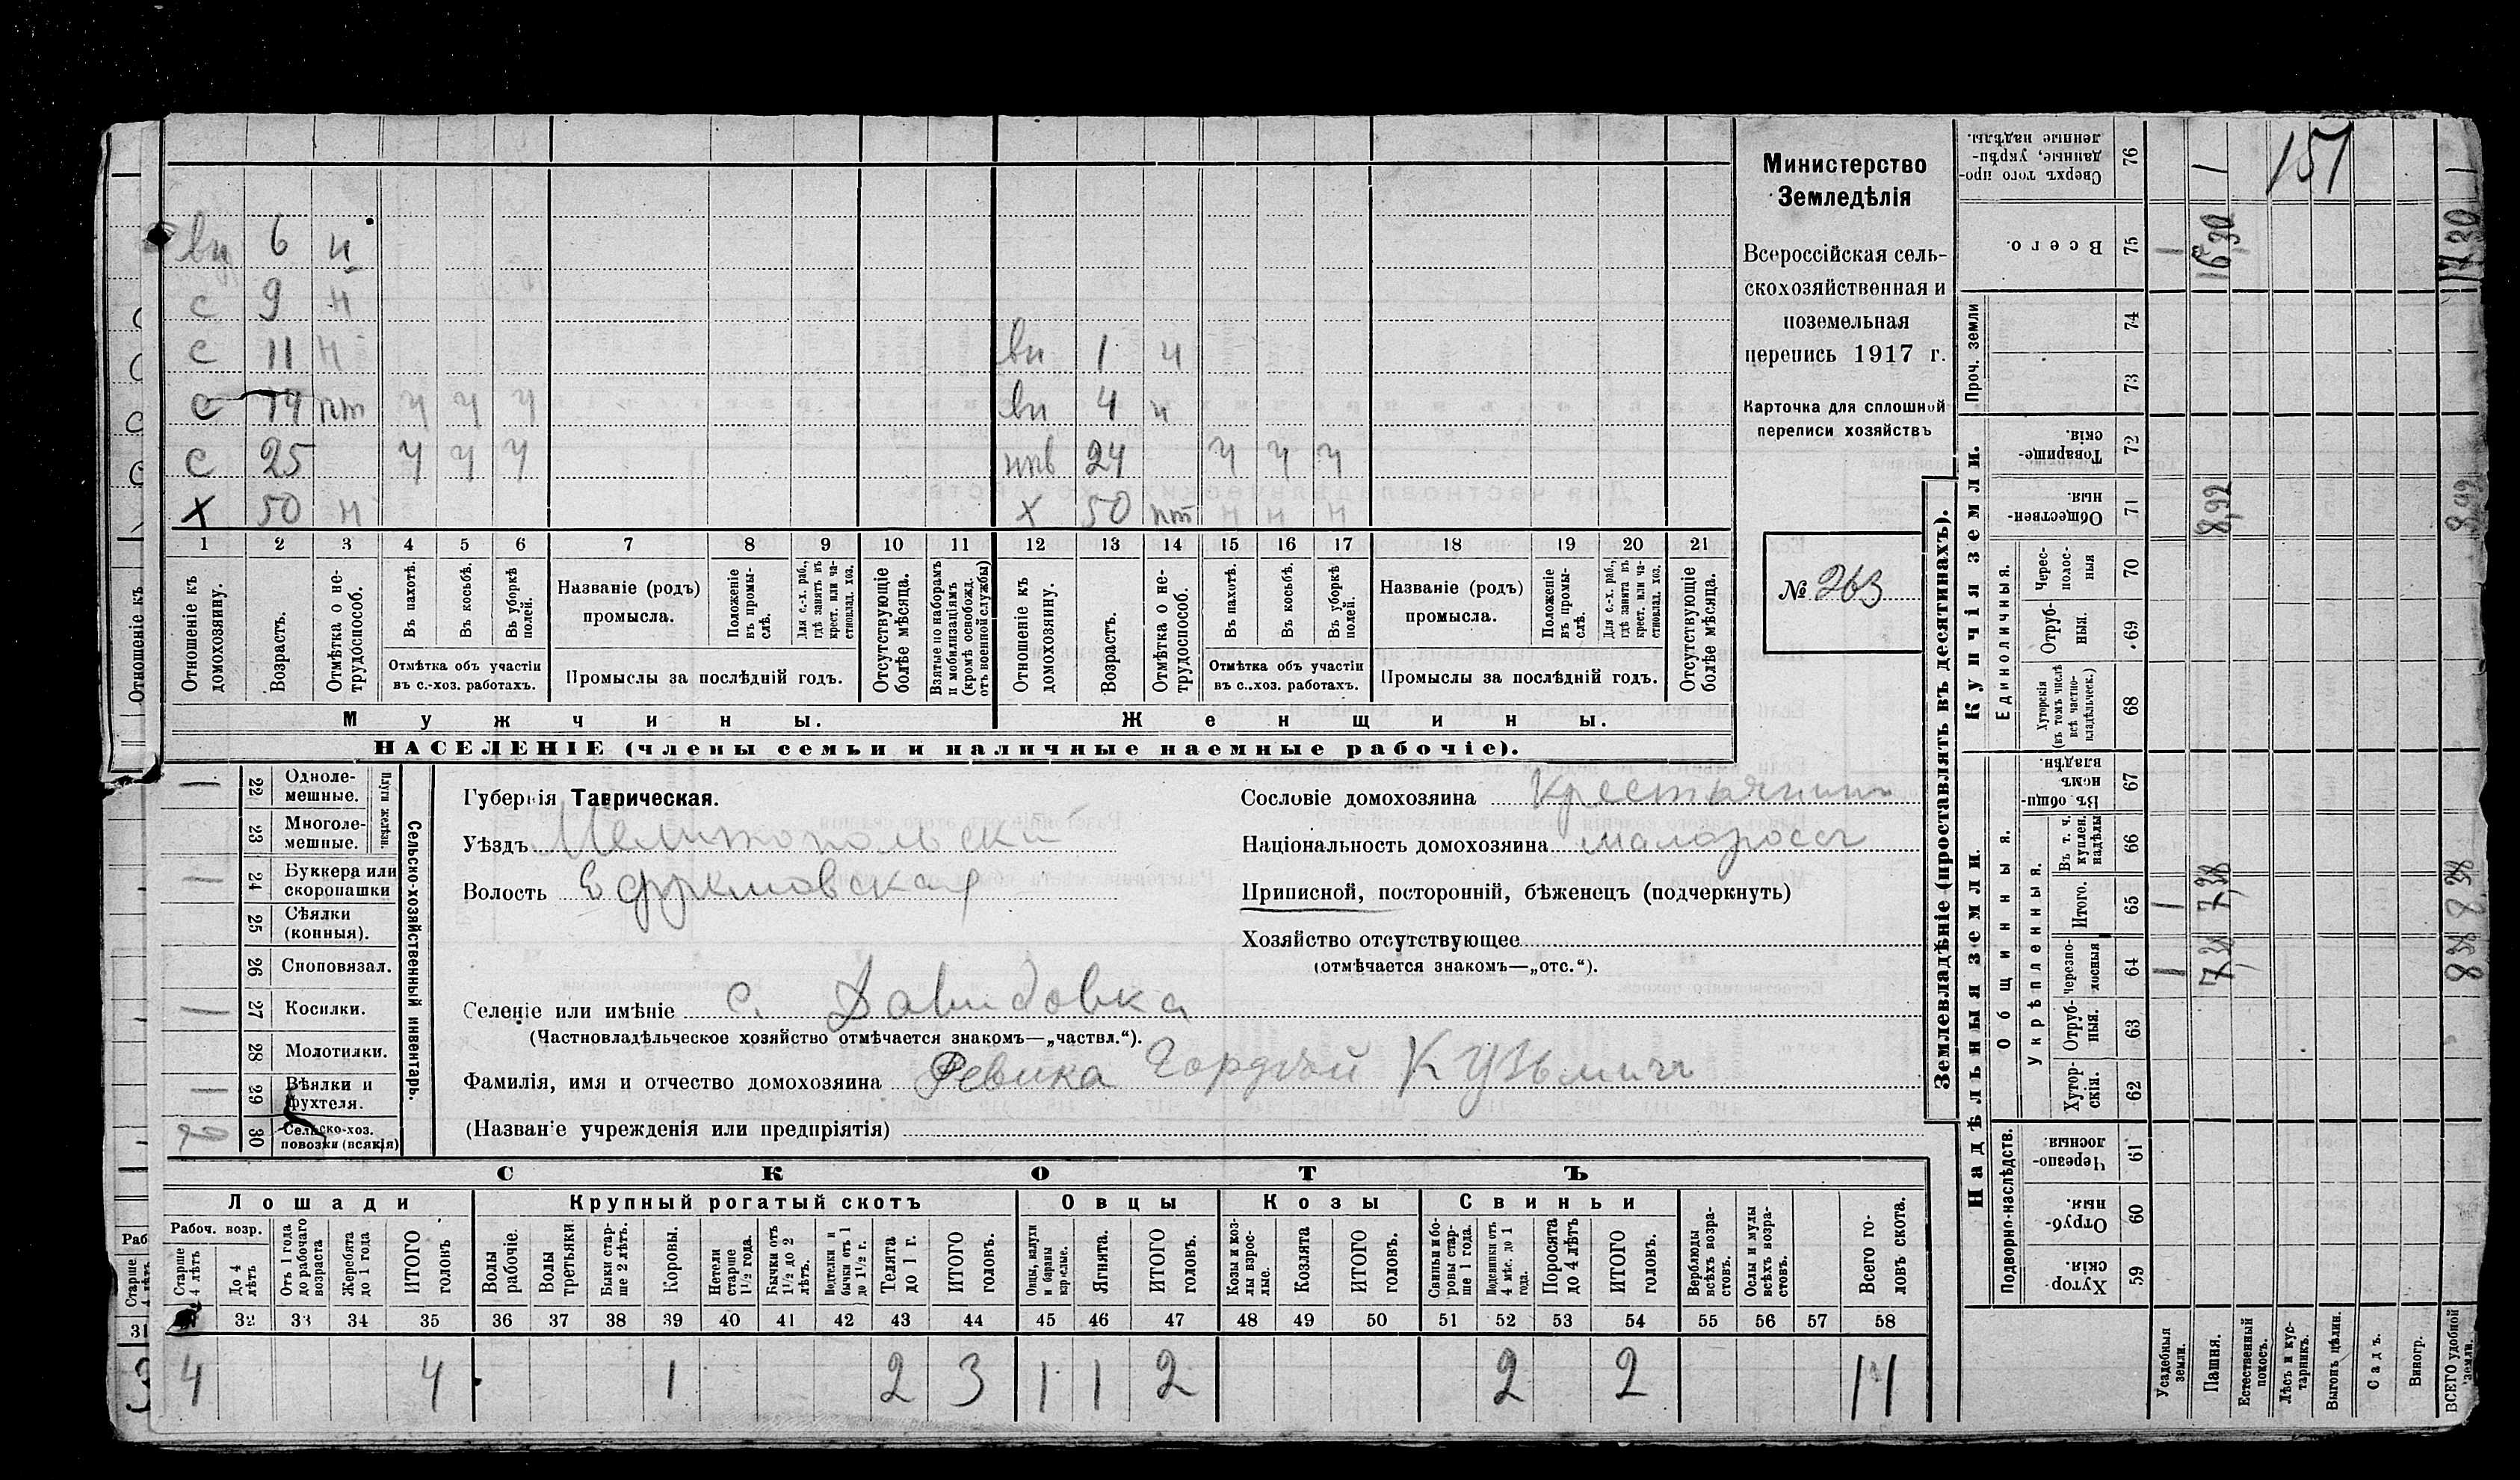 вн 6 н
с 9 н
с 11 н
с 14 пт ч ч ч
с 25 ч ч ч
х 50 н
вн 1 н
вн 4 н
нев 24 ч ч ч
х 50 пт н н н
1 2 3 4 5 6 7 8 9 10 11 12 13 14 15 16 17 18 19 20 21
Отношеніе къ домохозяину.
Возрастъ.
Отмѣтка о не-трудоспособ.
Въ пахотѣ.
Въ косьбѣ.
Въ уборкѣ полей.
Отмѣтка объ участіи
въ с.-хоз. работахъ.
Названіе (родъ)
промысла.
Положеніе въ промы-слѣ.
Для с.-х. раб., гдѣ занятъ въ крест. или ча-стновлад. хоз.
Промыслы за послѣдній годъ.
Отсутствующіе болѣе мѣсяца.
Взятые по наборамъ и мобилизаціямъ (кромѣ освобожд. отъ военной службы)
Отношеніе къ домохозяину.
Возрастъ.
Отмѣтка о не-трудоспособ.
Въ пахотѣ.
Въ косьбѣ.
Въ уборкѣ полей.
Отмѣтка объ участіи
въ с.-хоз. работахъ.
Названіе (родъ)
промысла.
Положеніе въ промы-слѣ.
Для с.-х. раб., гдѣ занята въ крест. или ча-стновлад. хоз.
Промыслы за послѣдній годъ.
Отсутствующіе болѣе мѣсяца.
Мужчины.
Женщины.
НАСЕЛЕНІЕ (члены семьи и наличные наемные рабочіе).
Министерство
Земледѣлія
Всероссійская сель-
скохозяйственная и
поземельная
перепись 1917 г.
Карточка для сплошной
переписи хозяйствъ
№ 263
Отношеніе къ
— 22 Одноле-мешные.
23 Многоле-мешные.
Плуги желѣзн.
— 24 Буккера или скоропашки
25 Сѣялки (конныя).
26 Сноповязал.
— 27 Косилки.
28 Молотилки.
— 29 Вѣялки и фухтеля.
30 Сельско-хоз. повозки (всякія)
Сельско-хозяйственный инвентарь.
Губернія Таврическая.
Уѣздъ Мелитопольскій
Волость Ефремовская
Сословіе домохозяина Крестьянинъ
Національность домохозяина малороссъ
Приписной, посторонній, бѣженецъ (подчеркнуть)
Хозяйство отсутствующее
(отмѣчается знакомъ—„отс.“).
Селеніе или имѣніе с. Давидовка
(Частновладѣльческое хозяйство отмѣчается знакомъ—„частвл.“).
Фамилія, имя и отчество домохозяина Ревика Гордѣй Кузьмичъ
(Названіе учрежденія или предпріятія)
СКОТЪ
Лошади
Крупный рогатый скотъ
Овцы
Козы
Свиньи
Рабоч. возр.
Старше 4 лѣтъ
До 4 лѣтъ
Отъ 1 года до рабочаго возраста
Жеребята до 1 года
ИТОГО головъ
Волы рабочіе.
Волы третьяки.
Быки стар-ше 2 лѣтъ.
Коровы.
Нетели старше 1½ года.
Бычки отъ 1½ до 2 лѣтъ.
Подтелки и бычки отъ 1 до 1½ г.
Телята до 1 г.
ИТОГО головъ.
Овцы, валухи и бараны взрослые.
Ягнята.
ИТОГО головъ.
Козы и коз-лы взрос-лые.
Козлята
ИТОГО головъ.
Свиньи и бо-ровы стар-ше 1 года.
Подсвинки отъ 4 мѣс. до 1 года.
Поросята до 4 лѣтъ
ИТОГО головъ.
Верблюды всѣхъ возра-стовъ.
Ослы и мулы всѣхъ возра-стовъ.
Всего го-ловъ скота.
32 33 34 35 36 37 38 39 40 41 42 43 44 45 46 47 48 49 50 51 52 53 54 55 56 57 58
4 4 1 2 3 1 1 2 2 2 11
Раб
Старше
31
3
Землевладѣніе (проставлять въ десятинахъ).
Надѣльныя земли.
Купчія земли.
Проч. земли
Подворно-наслѣдств.
Общинныя.
Укрѣпленныя.
Единоличныя.
Сверхъ того про-данные, укрѣп-ленные надѣлы. 76
Всего. 75
74
73
Товарище-скія. 72
Обществен-ныя 71
Черес-полос-ныя 70
Отруб-ныя. 69
Хуторскія (въ томъ числѣ всѣ частно-владѣльческ.) 68
Въ общи-номъ владѣн. 67
Въ т. ч. куплен. надѣлы 66
Итого. 65
Черезпо-лосныя 64
Отруб-ныя. 63
Хутор-скія. 62
Черезпо-лосныя 61
Отруб-ныя 60
Хутор-скія. 59
Усадебныя земли.
Пашня.
Естественный покосъ.
Лѣсъ и кус-тарникъ.
Выгонъ цѣлин.
Садъ.
Виногр.
ВСЕГО удобной земли.
151
1 1630 1730
8,92 8,92
1 7,38 8,38
1 7,38 8,38